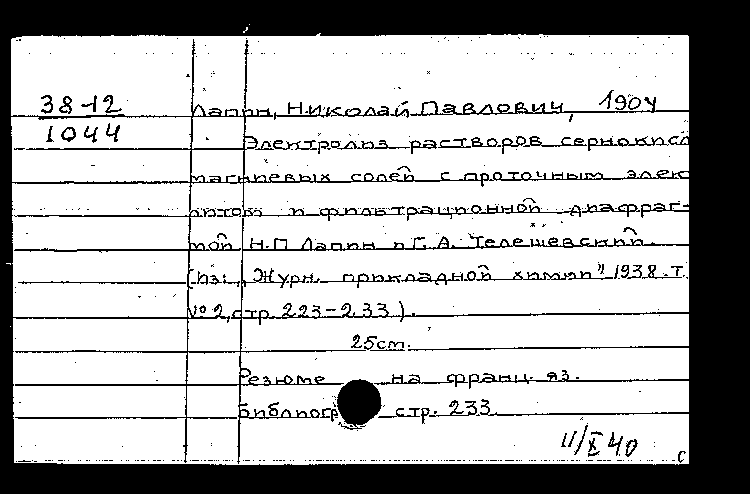 38-12
1044
Лапин, Николай Павлович, 1904
Электролиз растворов сернокисл
магниевых солей с проточным элек
литом и фильтрационной диафраг-
мой Н.П Лапин и Г.А. Телешевский.
(Из: „Журн. прикладной химии" 1938. Т.
№ 2, стр. 223-233).
25см.
Резюме на франц. яз.
Библиогр стр. 233.
11/X 40